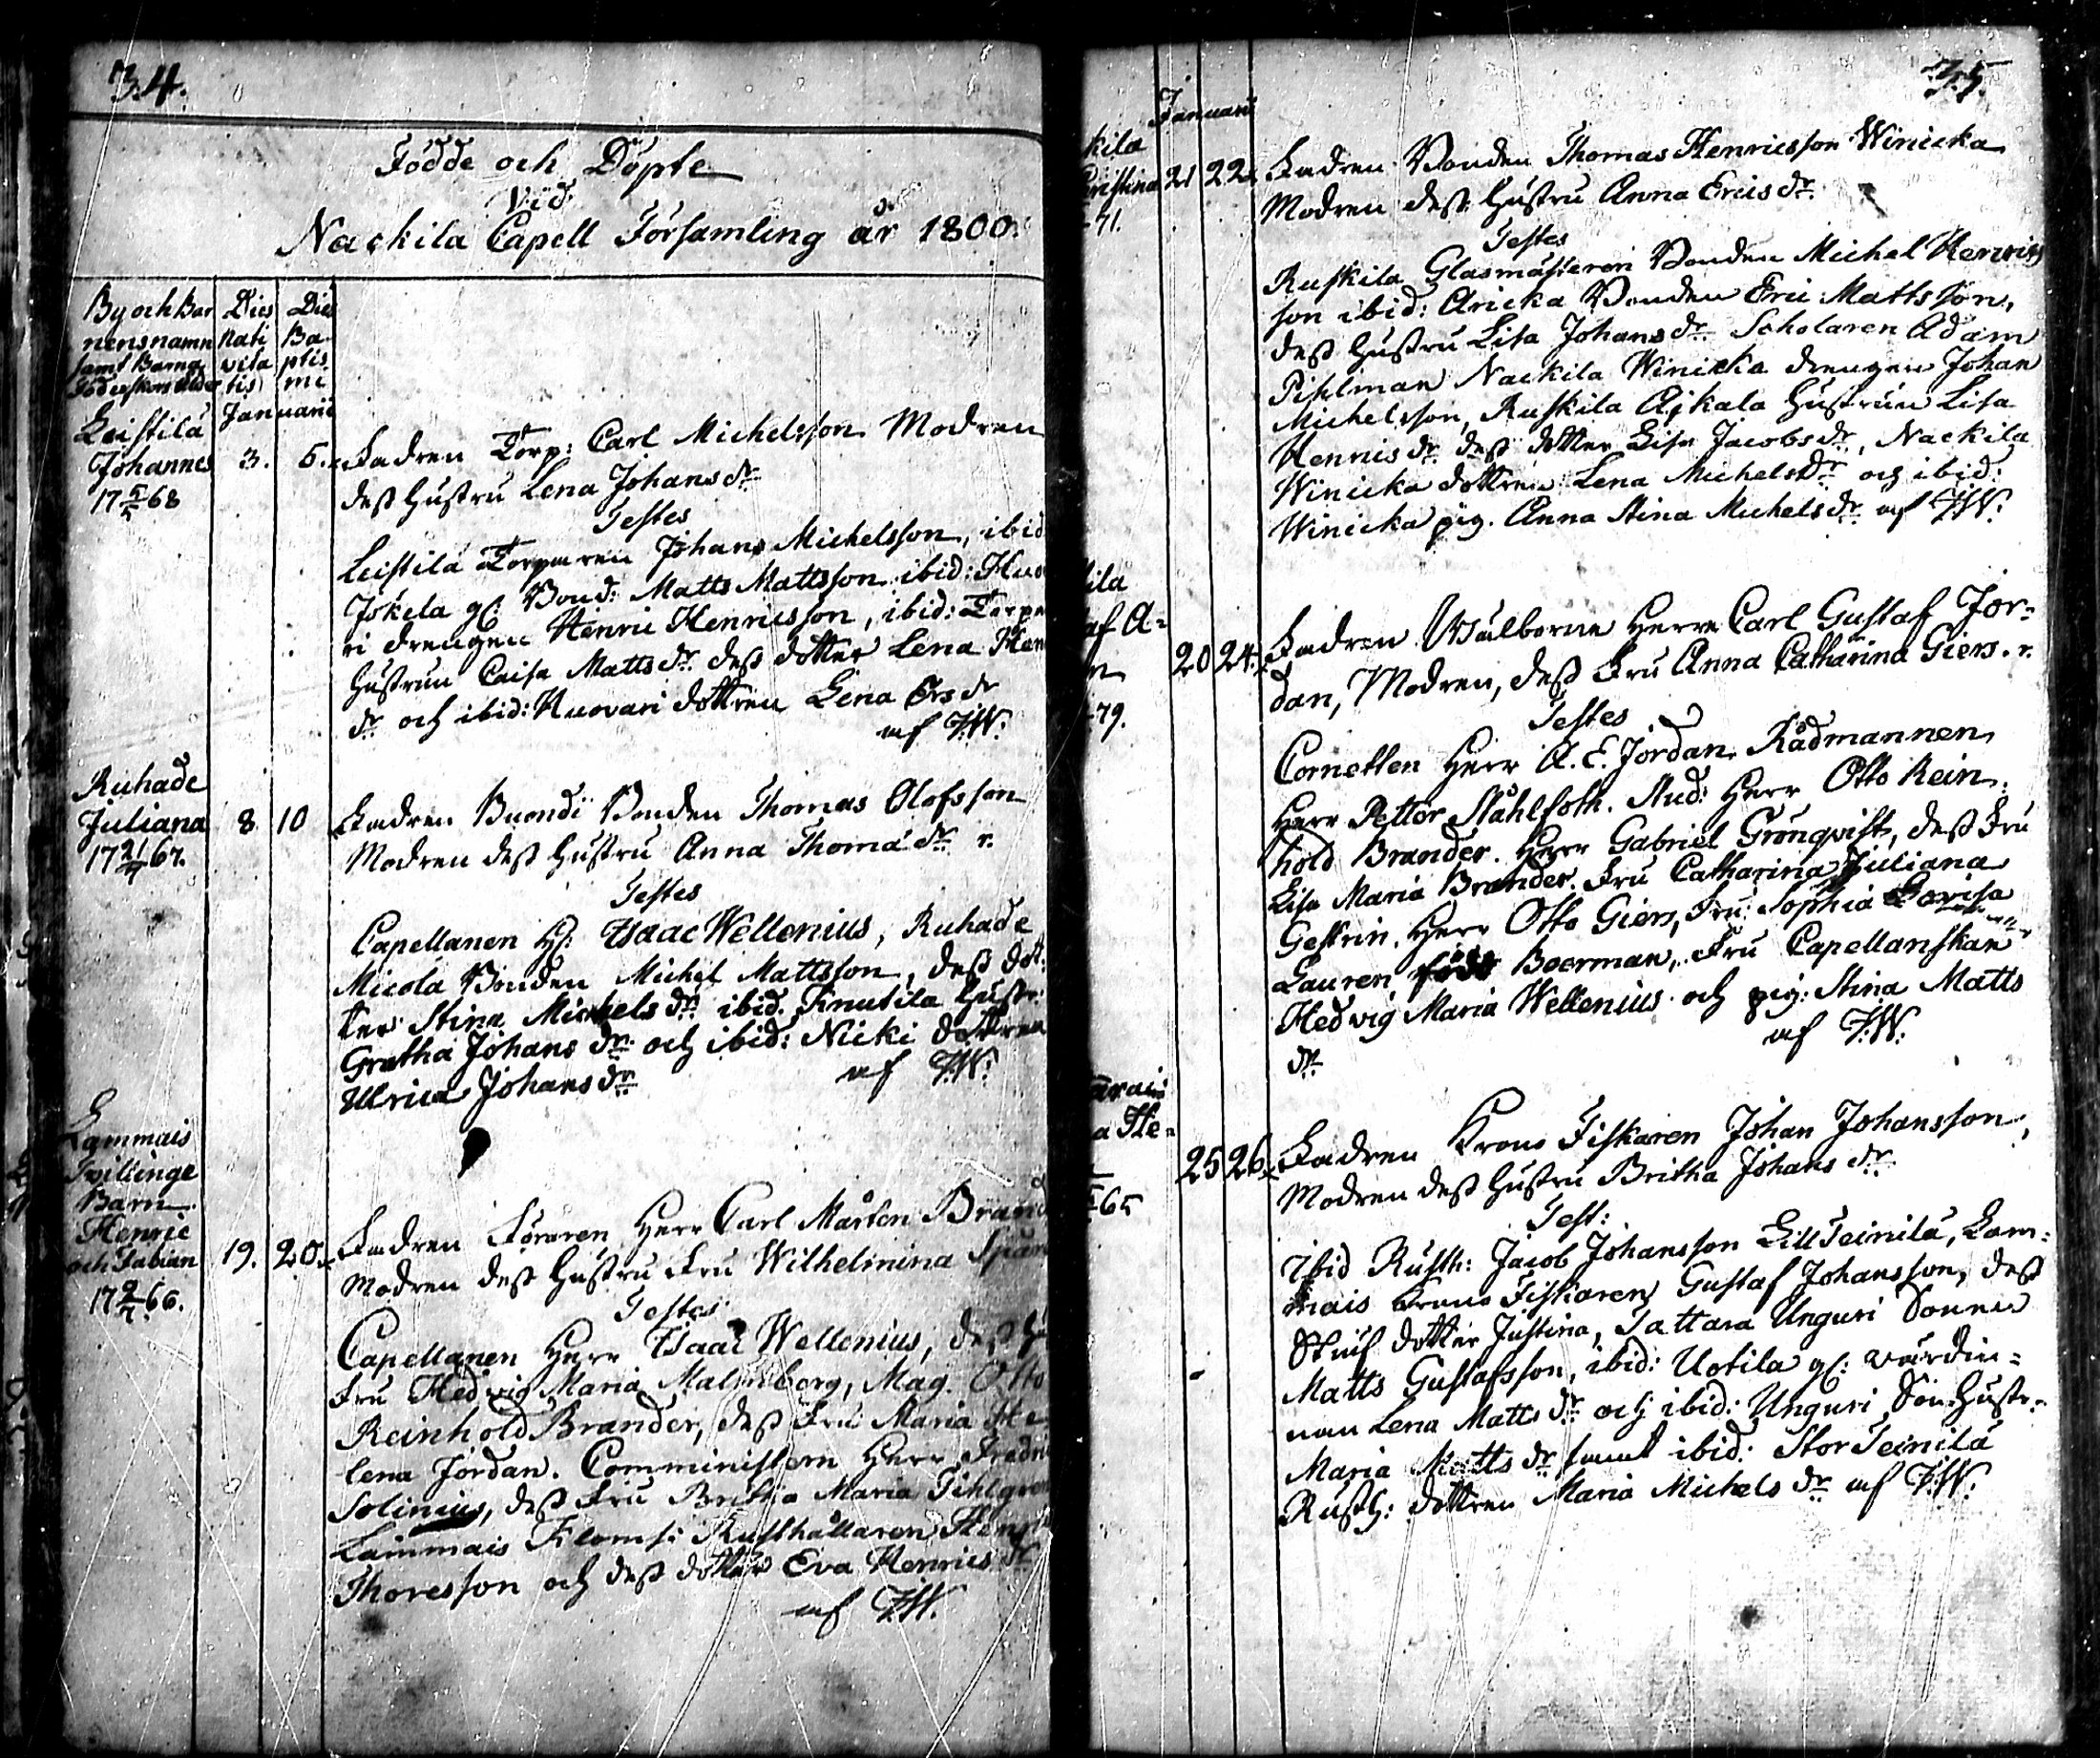 34.
Födde och Döpte
Vid
Nackila Capell Församling år 1800.
By och Bar
nens namn
samt Barna
Föderskors ålder
Dies
Nati
vita
tis
Dies
Ba-
ptis
mi
Januarii
Leistilä
Johannes
17 5/5 68
3. 5. Fadren Torp: Carl Michelsson Modren
dess Hustru Lena Johans dr
Testes
Leistilä Torparen Johans Michelsson, ibid
Iskela gl: Bond: Matts Mattsson ibid:
ri drengen Henric Henricsson, ibid: Torpa
Hustrun Caisa Matts dr dess dotter Lena Hen
dr och ibid: Knovari dottren Lena Ers dr
af I:W:
Ruhade
Juliana
17 21/4 67.
8 10 Fadren Buondi Bonden Thomas Olofsson
Modren dess Hustru Anna Thoma dr r.
Testes
Capellanen H: Isaac Wellenius, Ruhade
Micola Bonden Michel Mattsson, dess dot
ter Stina Michels dr ibid. Knutila Hustr:
Gretha Johans dr och ibid: Nicki dottren
Ulrica Johans dr af I:W:
Lammais
Tvillinge
Barn
Henric
och Fabian
17 2/7 66.
19. 20. Fadren Föraren Herr Carl Mårten Brand
Modren dess Hustru Fru Wilhelmina Spåre
Testes
Capellanen Herr Isaac Wellenius, dess
Fru Hedvig Maria Malmberg, Mag. Otto
Reinhold Brander, dess Fru Maria He
lena Jordan. Comministern Herr Fredric
Solinius, dess Fru Britha Maria Pihlgren
Lammais Klomsi Rusthållaren Henric
Thoresson och dess dotter Eva Henrics dr
af I:W.
35.
Januarii
kila
Christina
-71.
21 22. Fadren Bonden Thomas Henricsson Winicka
Modren dess Hustru Anna Erics dr
Testes
Ruskila Glasmästeren Bonden Michel Henrics
son ibid: Aricka Bonden Eric Mattsson,
dess Hustru Lisa Johans dr Scholaren Adam
Pihlman Nackila Winicka drengen Johan
Michelsson, Ruskila Ajkala Hustrun Lisa
Henrics dr dess dotter Lisa Jacobs dr, Nackila
Winicka dottren Lena Michels dr och ibid:
Winicka pig. Anna Stina Michels dr af I:W:
ila
af A-
n
-79.
20 24. Fadren Wälborne Herr Carl Gustaf Jor-
dan, Modren, dess Fru Anna Catharina Giers. r.
Testes
Cornetten Herr A. E. Jordan, Rådmannen
Herr Petter Ståhlfoth. Stud: Herr Otto Rein
hold Brander. Herr Gabriel Grönqvist, dess Fru
Lisa Maria Brander. Fru Catharina Juliana
Gestrin. Herr Otto Giers, Fru Sophia Lovisa
Lauren född Boerman, Fru Capellanskan
Hedvig Maria Wellenius och pig: Stina Matts
dr af I:W:
arais
a He-
65
25 26. Fadren Krono Fiskaren Johan Johansson,
Modren dess Hustru Britha Johans dr
Test:
Ibid Rusth: Jacob Johansson Lill Teinilä, Lam-
mais Krono Fiskaren Gustaf Johansson, dess
Stiuf dotter Justina, Sattara Unguri Sonen
Matts Gustafsson, ibid: Uotila gl: värdin-
nan Lena Matts dr och ibid: Unguri Son Hustr.
Maria Matts dr samt ibid: Stor Teinilä
Rusth: dottren Maria Michels dr af I:W: